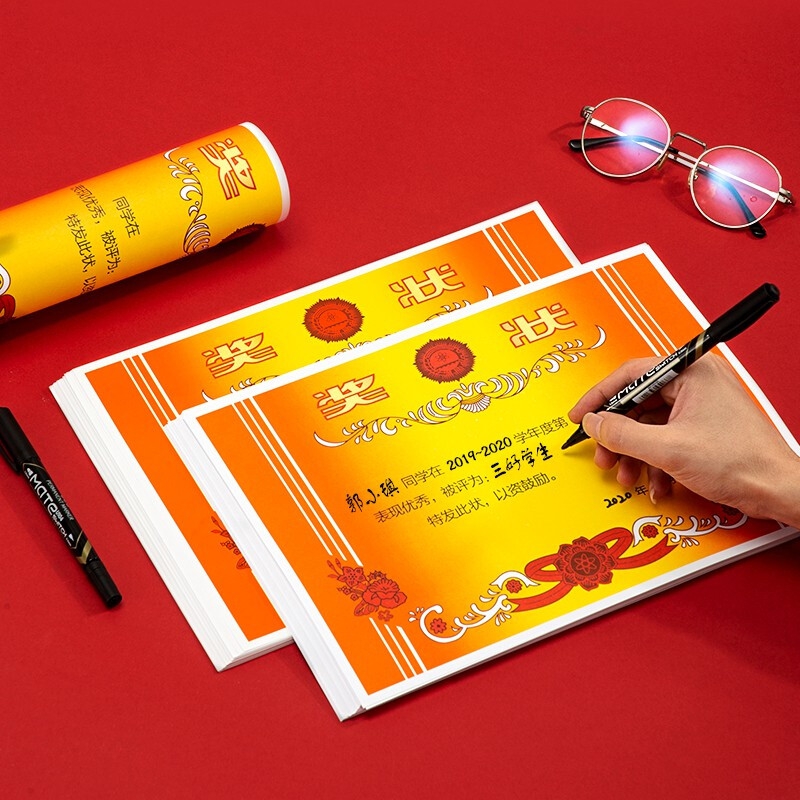 奖
同学在
表现优秀，被评为：
特发此状，以
奖 状
奖 状
郭小琪 同学在 2019~2020 学年度第
表现优秀，被评为：三好学生
特发此状，以资鼓励。
2020 年
MATE